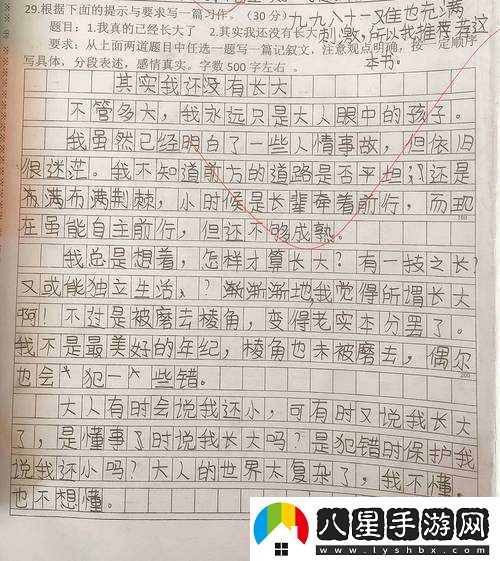 29.根据下面的提示与要求写一篇习作。(30分)
九九八十一难也充满
题目：1.我真的已经长大了 2.其实我还没有长大
刺激，所以我推荐看这
本书。
要求：从上面两道题目中任选一题写一篇记叙文，注意观点明确，按一定顺序
写具体，分段表述，感情真实。字数500字左右。
其实我还没有长大
不管多大，我永远只是大人眼中的孩子。
我虽然已经明白了一些人情事故，但依旧
很迷茫。我不知道前方的道路是否平坦，还是
布满布满荆棘，小时候是长辈牵着前行，而现
在虽能自主前行，但还不够成熟。
160
我总是想着，怎样才算长大？有一技之长？
又或能独立生活、？渐渐渐地，我觉得所谓长大
啊！不过是被磨去棱角，变得老实本分罢了。
我不是最美好的年纪，棱角也未被磨去，偶尔
也会犯一些错。
200
大人有时会说我还小，可有时又说我长大
了，是懂事了时说我长大吗？是犯错时保护我
说我还小吗？大人的世界太复杂了，我不懂，
也不想懂。
八星手游网
www.lyshbx.com